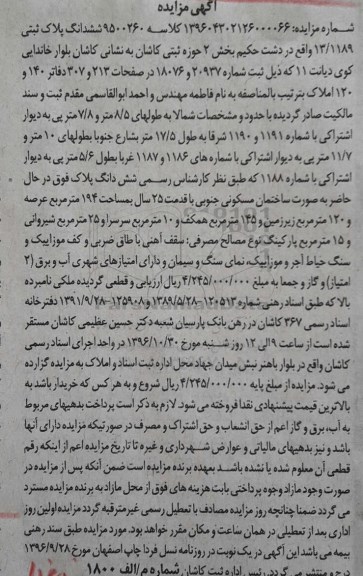 آگهی مزایده
شماره مزایده: ۱۳۹۶۰۴۳۰۲۱۲۶۰۰۰۰۶۶ کلاسه ۹۵۰۰۲۶۰ ششدانگ پلاک ثبتی
۱۳/۱۱۸۹ واقع در دشت حکیم بخش ۲ حوزه ثبتی کاشان به نشانی کاشان بلوار خاندایی
کوی دیانت ۱۱ که ذیل ثبت شماره ۲۰۹۳۷ و ۱۸۰۷۶ در صفحات ۲۱۳ و ۳۰۷ دفاتر ۱۴۰ و
۱۲۰ املاک بترتیب بالمناصفه به نام فاطمه مهندس و احمد ابوالقاسمی مقدم ثبت و سند
مالکیت صادر گردیده با حدود و مشخصات شمالا به طولهای ۸/۵ متر و ۷/۸ متر پی به دیوار
اشتراکی با شماره ۱۱۹۱ و ۱۱۹۰ شرقا به طول ۱۷/۵ متر بشارع جنوبا بطولهای ۱۰ متر و
۱۱/۷ پی به دیوار اشتراکی با شماره های ۱۱۸۶ و ۱۱۸۷ غربا بطول ۵/۶ متر پی به دیوار
اشتراکی با شماره ۱۱۸۸ که طبق نظر کارشناس رسمی شش دانگ پلاک فوق در حال
حاضر به صورت ساختمان مسکونی جنوبی با قدمت ۲۵ سال بمساحت ۱۹۴ مترمربع عرصه
و ۱۲۰ مترمربع زیرزمین و ۱۴۵ مترمربع همکف و ۱۰ مترمربع سرسرا و ۲۵ مترمربع شیروانی
و ۱۵ مترمربع پارکینگ نوع مصالح مصرفی: سقف آهنی با طاق ضربی و کف موزاییک و
سنگ حیاط آجر و موزاییک، نمای سنگ و سیمان و دارای امتیازهای شهری آب و برق (۲
امتیاز) و گاز و جمعا به مبلغ ۴/۲۴۵/۰۰۰/۰۰۰ ریال ارزیابی و قطعی گردیده ملکی نامبرده
بالا که طبق اسناد رهنی شماره ۱۲۰۵۱۳-۱۳۸۹/۵/۲۸ و ۱۲۵۹۰۸-۱۳۹۱/۹/۲۸ دفترخانه
اسناد رسمی ۳۶۷ کاشان در رهن بانک پارسیان شعبه دکتر حسین عظیمی کاشان مستقر
شده است از ساعت ۹ الی ۱۲ روز شنبه مورخ ۱۳۹۶/۱۰/۳۰ در واحد اجرای اسناد رسمی
کاشان واقع در بلوار باهنر نبش میدان جهاد محل اداره ثبت اسناد و املاک به مزایده گزارده
می شود. مزایده از مبلغ پایه ۴/۲۴۵/۰۰۰/۰۰۰ ریال شروع و به هر کس که خریدار باشد به
بالاترین قیمت پیشنهادی نقدا فروخته می شود. لازم به ذکر است پرداخت بدهیهای مربوط
به آب، برق و گاز اعم از حق انشعاب و حق اشتراک و مصرف در صورتیکه مزایده دارای آنها
باشد و نیز بدهیهای مالیاتی و عوارض شهرداری و غیره تا تاریخ مزایده اعم از اینکه رقم
قطعی آن معلوم شده یا نشده باشد بعهده برنده مزایده است ضمن آنکه پس از مزایده در
صورت وجود مازاد وجوه پرداختی بابت هزینه های فوق از محل مازاد به برنده مزایده مسترد
می گردد ضمنا چنانچه روز مزایده مصادف با تعطیل رسمی غیرمترقبه گردد مزایده اولین روز
اداری بعد از تعطیلی در همان ساعت و مکان مقرر خواهد بود. مورد مزایده طبق سند رهنی
بیمه می باشد این آگهی در یک نوبت در روزنامه نسل فردا چاپ اصفهان مورخ ۱۳۹۶/۹/۲۸
درج و منتشر می گردد. رئیس اداره ثبت کاشان شماره م/الف ۱۸۰۰